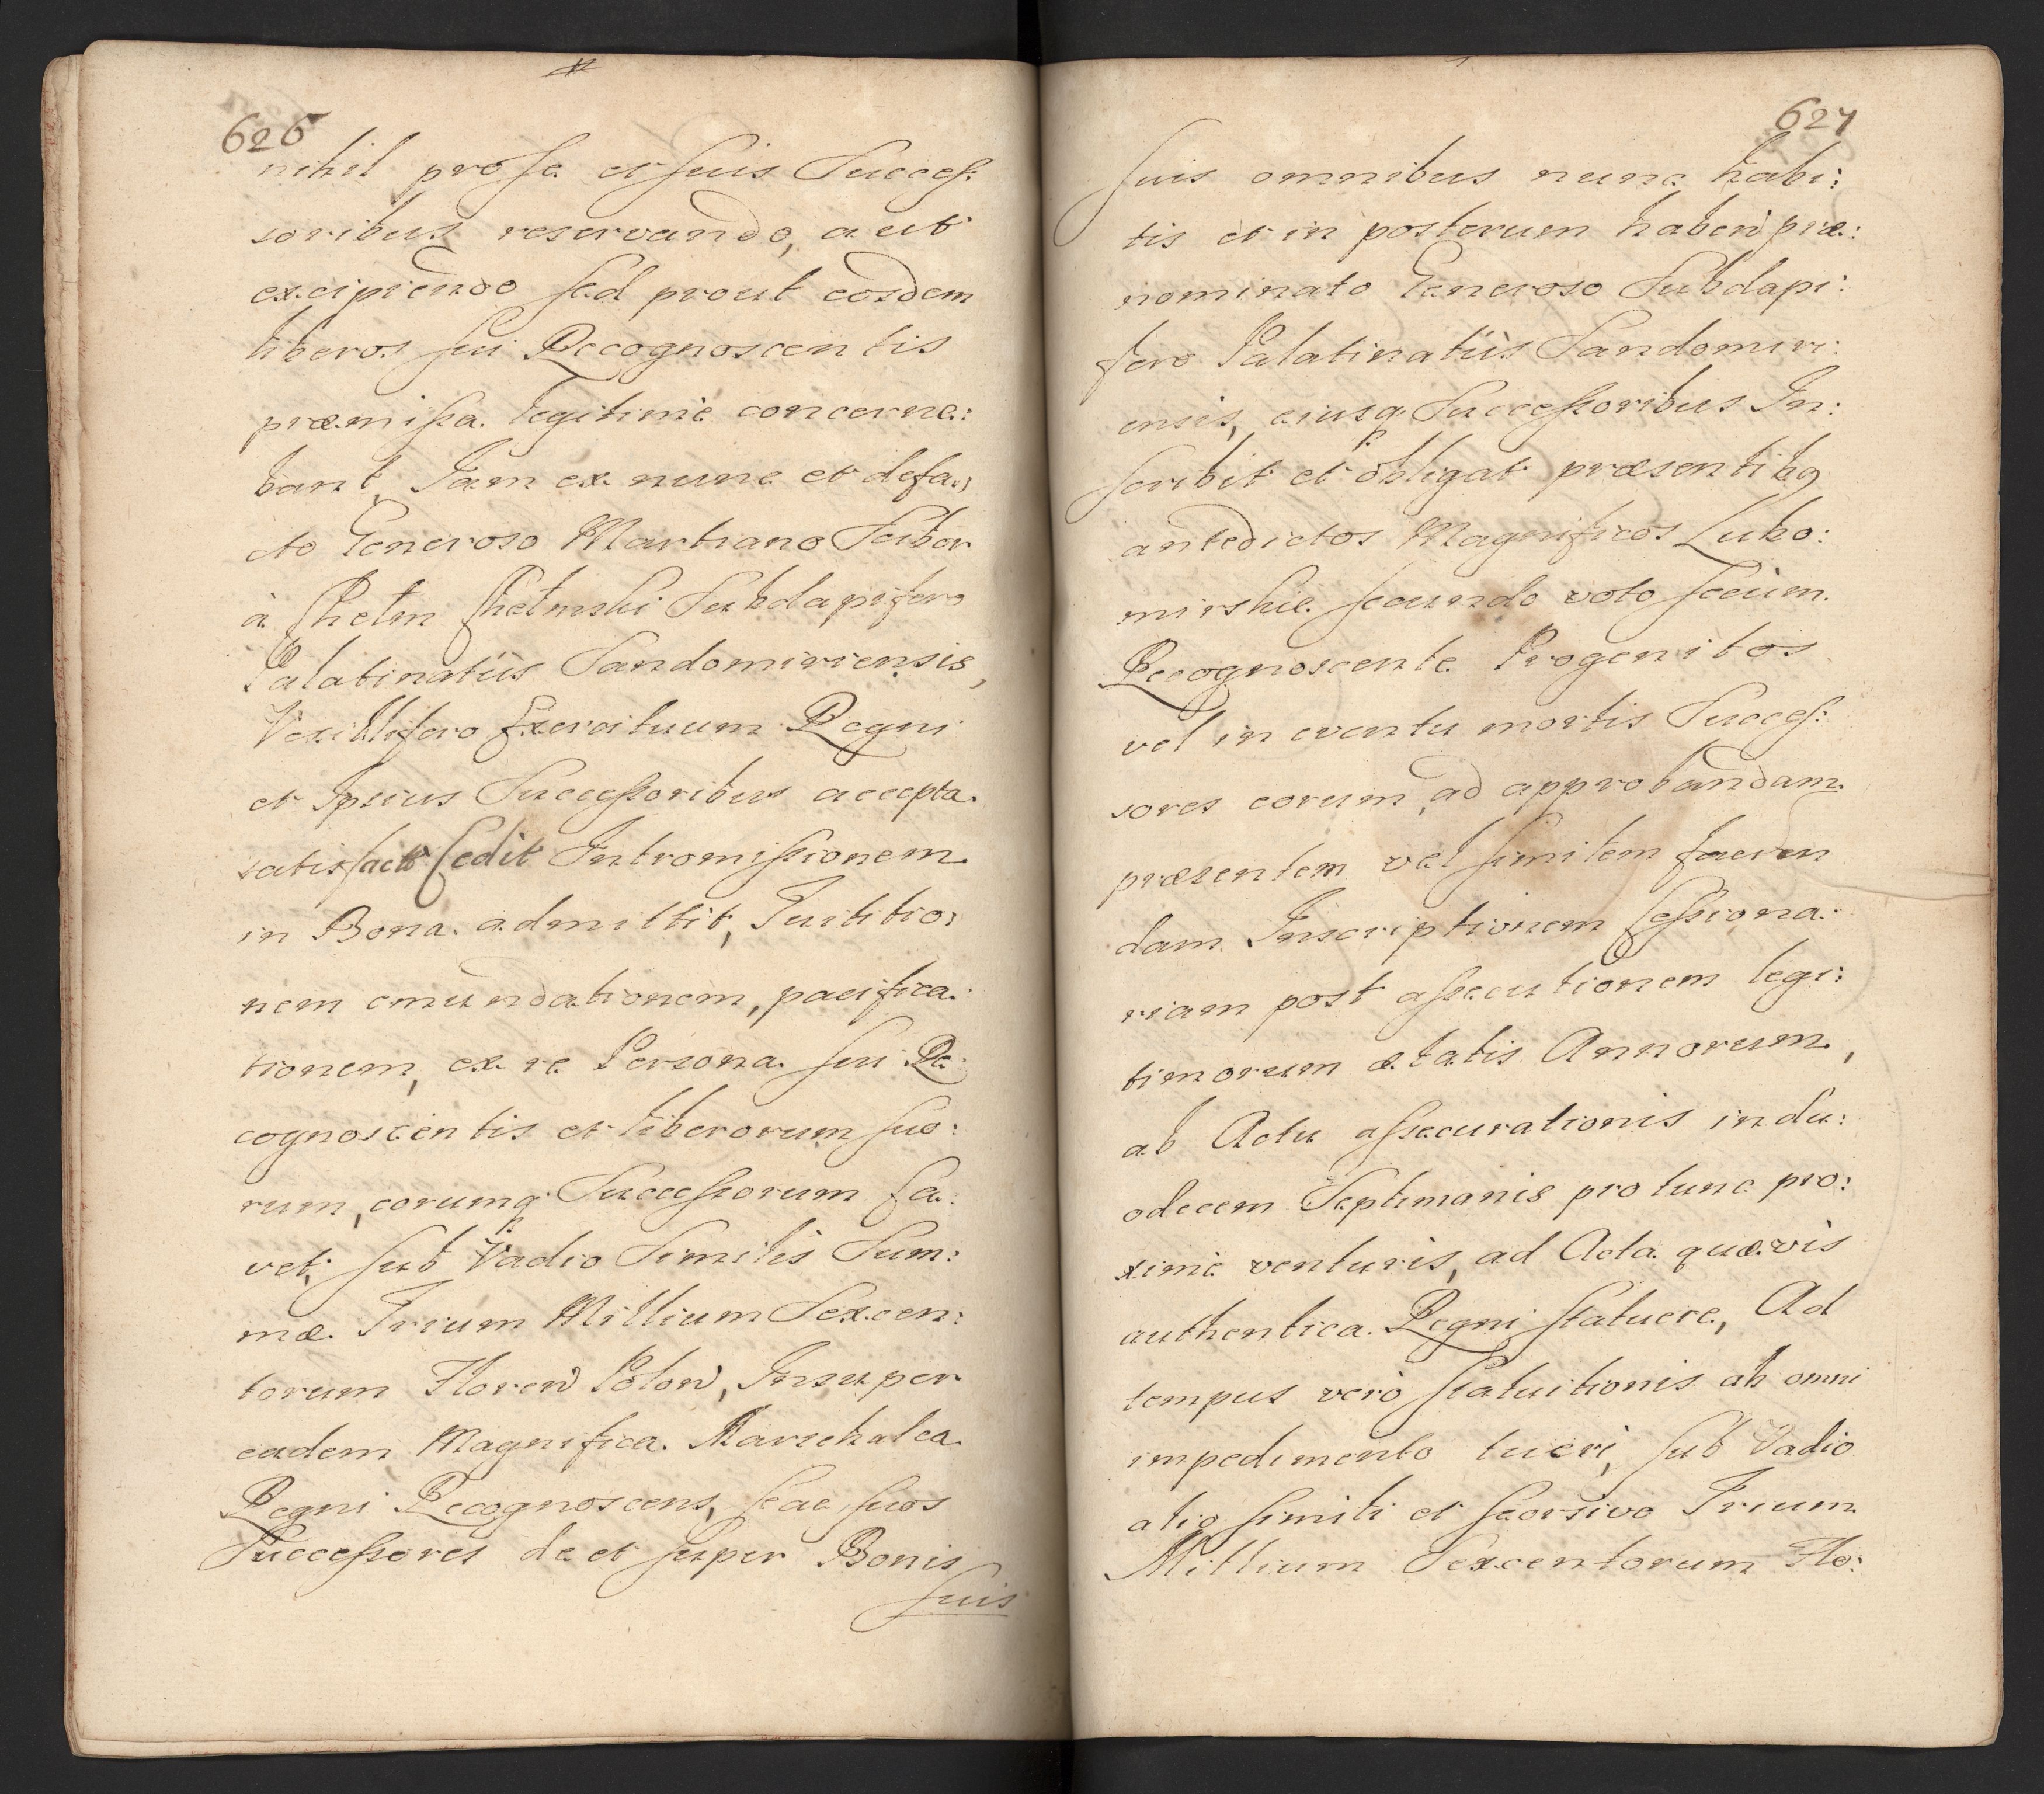 626
nihil pro se et suis Succes:
soribus reservando, aut
excipiendo sed prout eosdem
liberos sui Recognoscentis
præmissa legitimè concerne:
bant, Jam ex nunc et defa:
cto Generoso Martiano Scibor
à Chełm Chełmski Subdapifero
Palatinatûs Sandomiriensis,
Vexillifero Exercituum Regni
et Ipsius Successoribus accepta
satisfact Cedit Intromissionem
in Bona admittit, Tuitio:
nem emundationem, pacifica:
tionem, ex re Persona sui Re:
cognoscentis et liberorum suo:
rum, eorumq Successorum ca:
vet, sub Vadio Similis Sum:
mæ Trium Millium Sexcen:
torum Floren Polon, Insuper
eadem Magnifica Marschalca
Regni Recognoscens, seae suos
Successores de et super Bonis
suis
627
suis omnibus nunc habi:
tis et in posterum haben præ:
nominato Generoso Subdapi:
fero Palatinatûs Sandomiri:
ensis, eiusq Successoribus In:
scribit et obligat præsentibq
antedictos Magnificos Lubo:
mirskie secundo voto secùm
Recognoscente Progenitos
vel in eventu mortis Succes:
sores eorum, ad approbandam
præsentem vel similem facien
dam Inscriptionem Cessiona:
riam post assecutionem legi:
timorum ætatis Annorum,
ab Actu assecurationis in du:
odecem Septimanis pro tunc pro:
ximè venturis, ad Acta quævis
authentica Regni statuere, Ad
tempus verò statuitionis ab omni
impedimento tueri, sub Vadio
alio simili et seorsivo Trium
Millium Sexcentorum Flo: